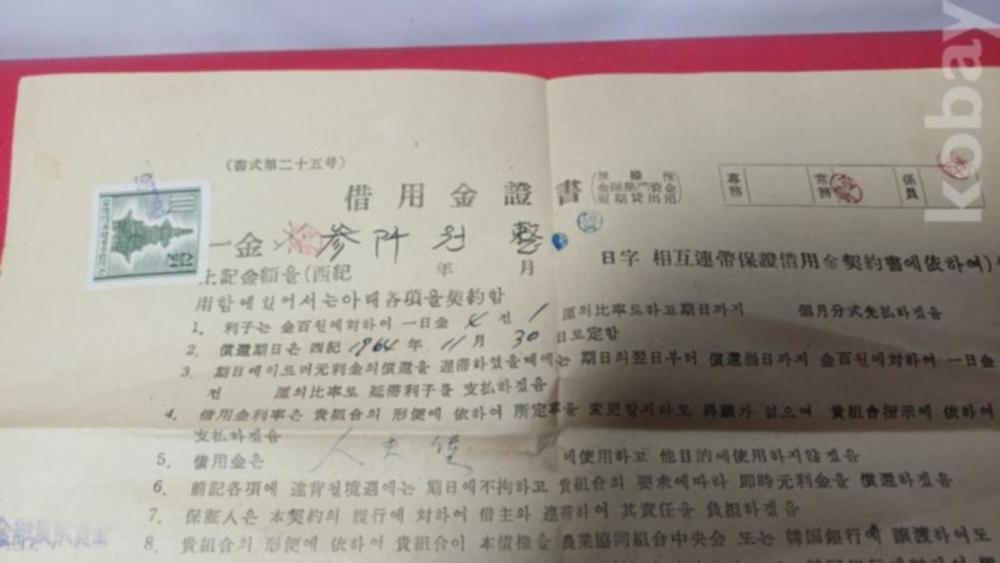 kobay
(書式第二十五号)
借用金證書
(無擔保
金融部門資金
短期貸出用)
專務
常務
係員
一金 參阡원整
上記金額을(西紀 年 月 日字 相互連帶保證借用金契約書에依하여)
用함에있어서는아래各項을契約함
1. 利子는 金百원에対하여 一日金 4 전 1 厘의比率도하고期日까지 個月分式先払하겠음
2. 償還期日은 西紀 1964 年 11 月 30 日로定함
3. 期日에이르러元利金의償還을 遲滯하였을때에는 期日의翌日부터 償還当日까지 金百원에対하여 一日金
전 厘의比率로 延滯利子를 支払하겠음
4. 借用金利率은 貴組合의 形便에 依하여 所定率을 変更할지라도 異議가 없으며 貴組合指示에 依하여
支払하겠음
5. 借用金은 人夫 에使用하고 他目的에使用하지않겠음
6. 前記各項에 違背된境遇에는 期日에不拘하고 貴組合의 要求에따라 即時元利金을 償還하겠음
7. 保証人은 本契約의 履行에 対하여 借主와 連帶하여 其責任을 負担하겠음
8. 貴組合의 形便에 依하여 貴組合이 本債権을 農業協同組合中央会 또는 韓国銀行에 譲渡하여도